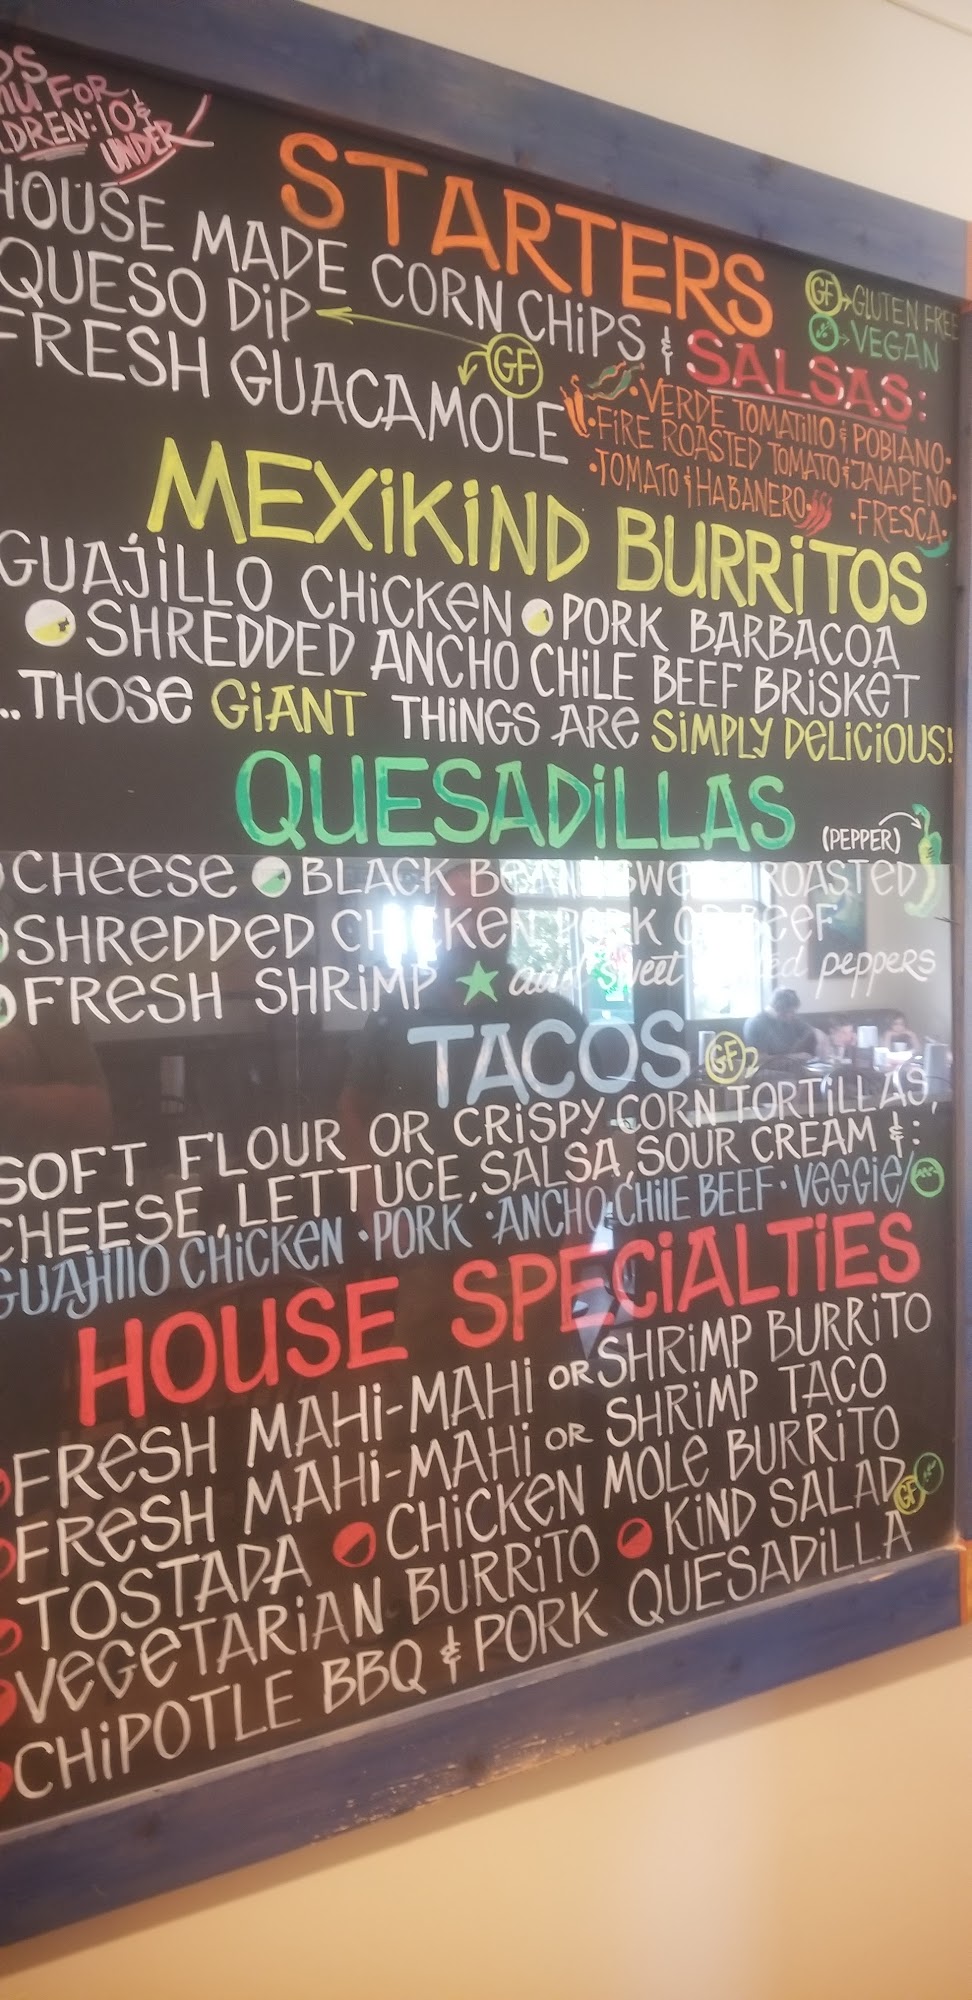 MENU FOR
CHILDREN: 10 &
UNDER
STARTERS
HOUSE MADE CORN CHIPS & SALSAS:
QUESO DIP
FRESH GUACAMOLE
GF
GF → GLUTEN FREE
→ VEGAN
• VERDE TOMATILLO & POBLANO •
• FIRE ROASTED TOMATO & JALAPENO •
• TOMATO & HABANERO
• FRESCA •
MEXIKIND BURRITOS
GUAJILLO CHICKEN PORK BARBACOA
SHREDDED ANCHO CHILE BEEF BRISKET
...THOSE GIANT THINGS ARE SIMPLY DELICIOUS!
QUESADILLAS
(PEPPER)
CHEESE BLACK BEAN SWEET ROASTED
SHREDDED CHICKEN PORK OR BEEF
FRESH SHRIMP ★ and sweet peppers
TACOS GF
SOFT FLOUR OR CRISPY CORN TORTILLAS,
CHEESE, LETTUCE, SALSA, SOUR CREAM & :
GUAJILLO CHICKEN • PORK • ANCHO CHILE BEEF • VEGGIE/
HOUSE SPECIALTIES
FRESH MAHI-MAHI OR SHRIMP BURRITO
FRESH MAHI-MAHI OR SHRIMP TACO
TOSTADA CHICKEN MOLE BURRITO
VEGETARIAN BURRITO KIND SALAD GF
CHIPOTLE BBQ & PORK QUESADILLA